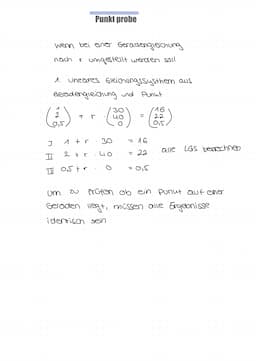 Punkt probe
wenn bei einer Geradengleichung
nach r umgestellt werden soll
1. Lineares Gleichungssystem aus
Geradengleichung und Punkt
(1 2 0,5) + r · (30 40 0) = (16 22 0,5)
I 1 + r · 30 = 16
II 2 + r · 40 = 22 alle LGS berechnen
III 0,5 + r · 0 = 0,5
um zu prüfen ob ein Punkt auf einer
Geraden liegt, müssen alle Ergebnisse
identisch sein